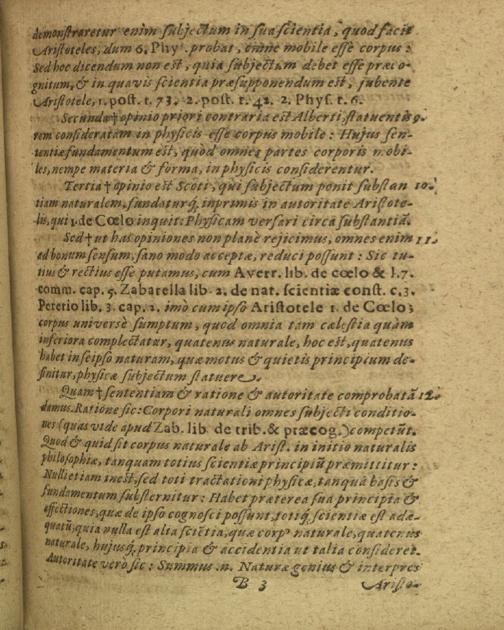 demonstraretur enim subjectum in sua scientia, quod facit
Aristoteles, dum 6. Phys. probat, omne mobile esse corpus:
Sed hoc dicendum non est, quia subjectum debet esse præco-
gnitum, & in quavis scientia præsupponendum est, jubente
Aristotele, 1. post. t. 73. 2. post. t. 42. 2. Phys. t. 6.
Secunda † opinio priori contraria est Alberti, statuentis 9.
rem consideratam in physicis esse corpus mobile: Hujus sen-
tentiæ fundamentum est, quod omnes partes corporis mobi-
les, nempe materia & forma, in physicis considerentur.
Tertia † opinio est Scoti, qui subjectum ponit substan 10.
tiam naturalem, fundaturq́; inprimis in autoritate Aristote-
lis, qui 1. de Cœlo inquit: Physicam versari circa substantiā.
Sed † ut has opiniones non planè rejicimus, omnes enim 11.
ad bonum sensum, sano modo acceptæ, reduci possunt: Sic tu-
tius & rectius esse putamus, cum Averr. lib. de cœlo & l. 7.
comm. cap. 5. Zabarella lib. 2. de nat. scientiæ const. c. 3.
Pererio lib. 3. cap. 2. imò cum ipso Aristotele 1. de Cœlo;
corpus universè sumptum, quod omnia tam cælestia quàm
inferiora complectatur, quatenus naturale, hoc est, quatenus
habet in seipso naturam, quæ motus & quietis principium de-
finitur, physicæ subjectum statuere.
Quam † sententiam & ratione & autoritate comprobatā 12.
damus. Ratione sic: Corpori naturali omnes subjecti conditio-
nes (quas vide apud Zab. lib. de trib. & præcog.) competūt.
Quod & quid sit corpus naturale ab Arist. in initio naturalis
philosophiæ, tanquam totius scientiæ principiū præmittitur:
Nulli etiam inest, sed toti tractationi physicæ, tanquā basis &
fundamentum substernitur: Habet præterea sua principia &
effectiones, quæ de ipso cognosci possunt, totiq́; scientiæ est adæ-
quatū, quia nulla est alia sciētia, quæ corp⁹ naturale, quatenus
naturale, hujusq́; principia & accidentia ut talia consideret.
Autoritate verò sic: Summus .n. Naturæ genius & interpres
B 3
Aristo-